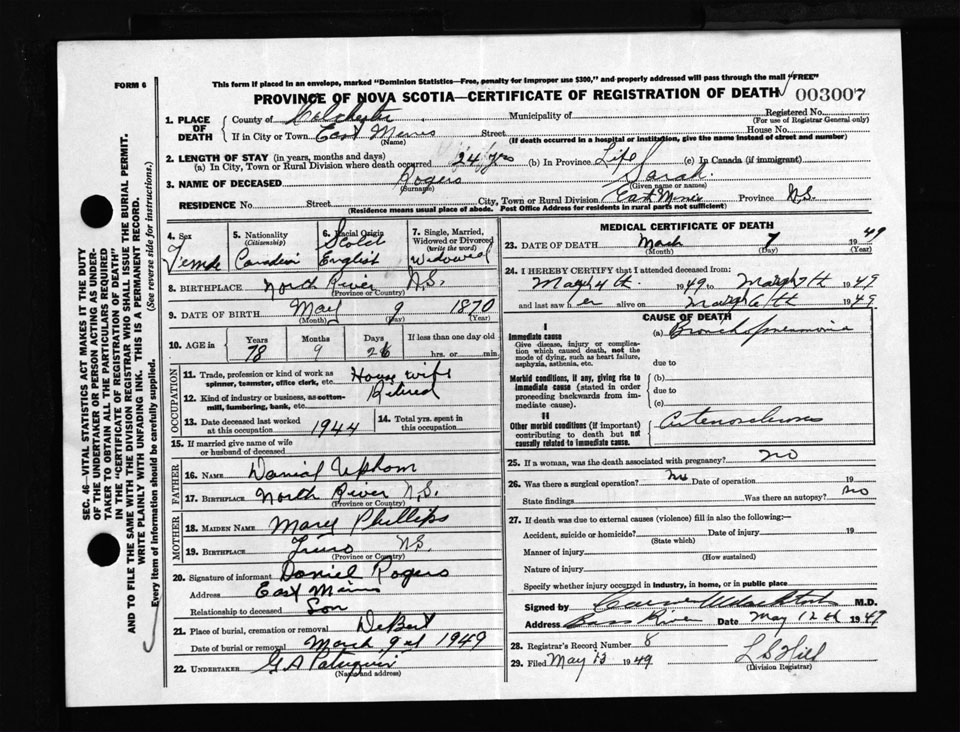 FORM 6
This form if placed in an envelope, marked "Dominion Statistics—Free, penalty for improper use $300," and properly addressed will pass through the mail "FREE"
PROVINCE OF NOVA SCOTIA—CERTIFICATE OF REGISTRATION OF DEATH 003007
SEC. 46—VITAL STATISTICS ACT MAKES IT THE DUTY
OF THE UNDERTAKER OR PERSON ACTING AS UNDER-
TAKER TO OBTAIN ALL THE PARTICULARS REQUIRED
IN THE "CERTIFICATE OF REGISTRATION OF DEATH"
AND TO FILE THE SAME WITH THE DIVISION REGISTRAR WHO SHALL ISSUE THE BURIAL PERMIT.
WRITE PLAINLY WITH UNFADING INK. THIS IS A PERMANENT RECORD.
Every item of information should be carefully supplied. (See reverse side for instructions.)
1. PLACE OF DEATH
County of Colchester Municipality of Registered No.
(For use of Registrar General only)
If in City or Town East Mines Street House No.
(Name) (If death occurred in a hospital or institution, give the name instead of street and number)
2. LENGTH OF STAY (in years, months and days)
(a) In City, Town or Rural Division where death occurred 24 yrs (b) In Province Life (c) In Canada (if immigrant)
3. NAME OF DECEASED Rogers Sarah
(Surname) (Given name or names)
RESIDENCE No. Street City, Town or Rural Division East Mines Province N.S.
(Residence means usual place of abode. Post Office Address for residents in rural parts not sufficient)
4. Sex Female
5. Nationality (Citizenship) Canadian
6. Racial Origin English
7. Single, Married, Widowed or Divorced (write the word) Widowed
8. BIRTHPLACE North River N.S.
(Province or Country)
9. DATE OF BIRTH May 9 1870
(Month) (Day) (Year)
10. AGE in Years Months Days If less than one day
78 9 26 hrs. or min.
OCCUPATION
11. Trade, profession or kind of work as spinner, teamster, office clerk, etc. House wife
12. Kind of industry or business, as cotton-mill, lumbering, bank, etc. Retired
13. Date deceased last worked at this occupation 1944
14. Total yrs. spent in this occupation
15. If married give name of wife or husband of deceased
FATHER
16. NAME Daniel Upham
17. BIRTHPLACE North River N.S.
MOTHER
18. MAIDEN NAME Mary Phillips
19. BIRTHPLACE Truro N.S.
(Province or Country)
20. Signature of informant Daniel Rogers
Address East Mines
Relationship to deceased Son
21. Place of burial, cremation or removal DeBert
Date of burial or removal March 9 1949
22. UNDERTAKER G. A.
(Name and address)
MEDICAL CERTIFICATE OF DEATH
23. DATE OF DEATH March 7 1949
(Month) (Day) (Year)
24. I HEREBY CERTIFY that I attended deceased from:
March 4th 1949 to March 7th 1949
and last saw er alive on March 6th 1949
CAUSE OF DEATH
I
Immediate cause (a) Bronchopneumonia
Give disease, injury or complication which caused death, not the mode of dying, such as heart failure, asphyxia, asthenia, etc.
due to
Morbid conditions, if any, giving rise to immediate cause (stated in order proceeding backwards from immediate cause).
(b)
due to
(c)
II
Other morbid conditions (if important) contributing to death but not causally related to immediate cause. Arteriosclerosis
25. If a woman, was the death associated with pregnancy? no
26. Was there a surgical operation? no Date of operation 19
State findings Was there an autopsy? no
27. If death was due to external causes (violence) fill in also the following:—
Accident, suicide or homicide? Date of injury 19
(State which)
Manner of injury
(How sustained)
Nature of injury
Specify whether injury occurred in industry, in home, or in public place
Signed by M.D.
Address Bass River Date May 12th 1949
28. Registrar's Record Number 8
29. Filed May 13 1949 L S Hill
(Division Registrar)